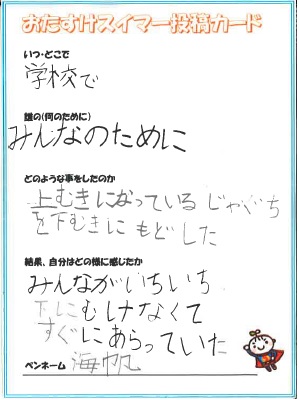 おたすけスイマー投稿カード
いつ・どこで
学校で
誰の(何のために)
みんなのために
どのような事をしたのか
上むきになっている じゃぐち
を下むきに もどした
結果、自分はどの様に感じたか
みんながいちいち
下にむけなくて
すぐにあらっていた
ペンネーム 海帆